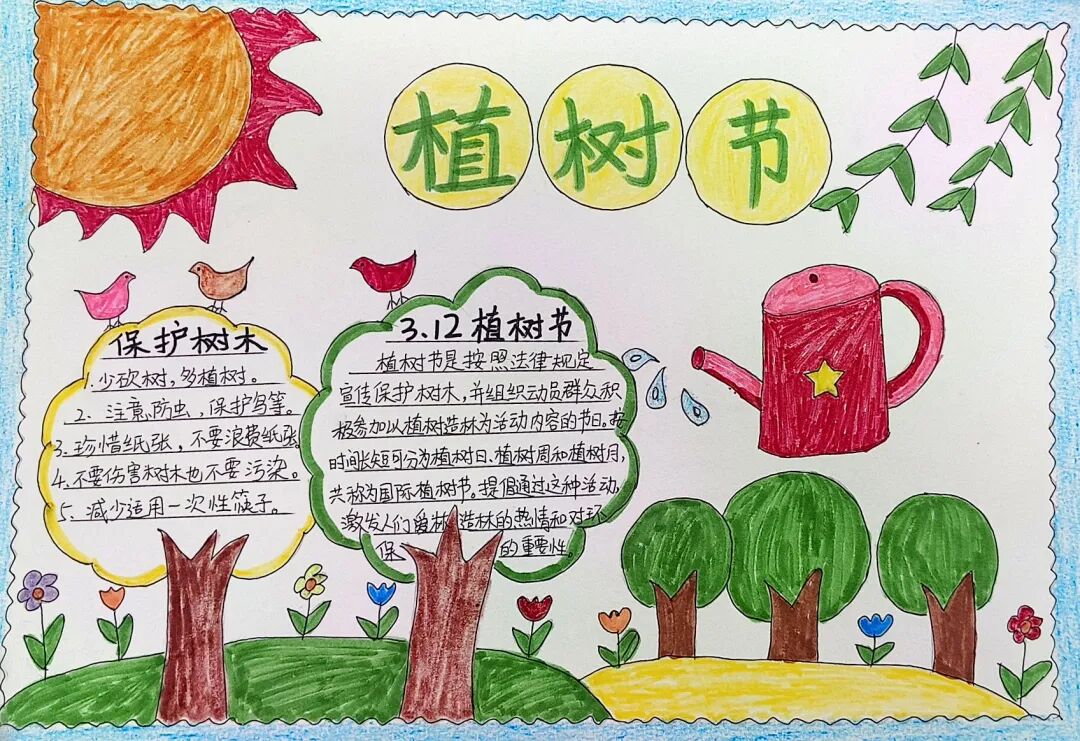 植树节
保护树木
1.少砍树,多植树。
2、注意防虫,保护鸟等。
3.珍惜纸张,不要浪费纸张
4.不要伤害树木也不要污染。
5、减少适用一次性筷子。
3.12植树节
植树节是按照法律规定
宣传保护树木,并组织动员群众积
极参加以植树造林为活动内容的节日。按
时间长短可分为植树日、植树周和植树月,
共称为国际植树节。提倡通过这种活动,
激发人们爱林造林的热情和对环
保的重要性。